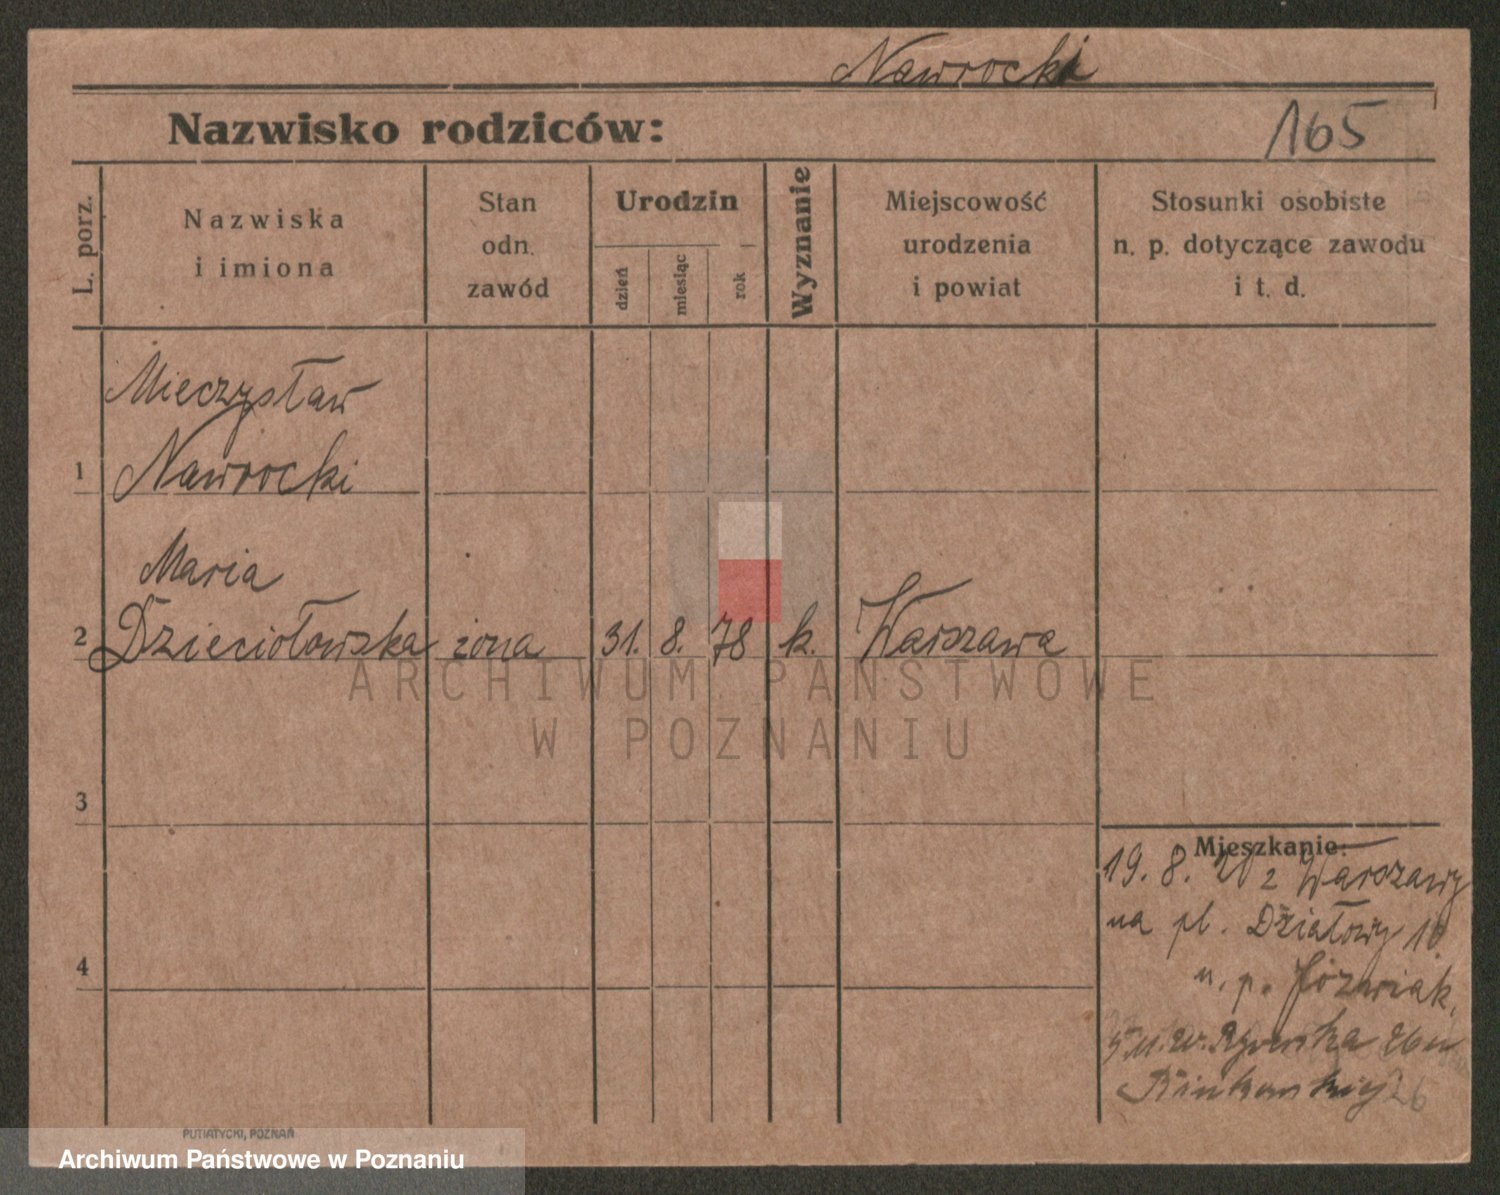 Nawrocki
Nazwisko rodziców:
165
L. porz.
Nazwiska
i imiona
Stan
odn.
zawód
Urodzin
dzień
miesiąc
rok
Wyznanie
Miejscowość
urodzenia
i powiat
Stosunki osobiste
n. p. dotyczące zawodu
i t. d.
Mieczysław
1 Nawrocki
Maria
2 Dzieciołowska żona 31. 8. 78 k. Warszawa
3
4
Mieszkanie:
19. 8. 20 z Warszawy
na pl. Działowy 10.
u. p. Józwiak.
26 u
26
PUTIATYCKI, POZNAŃ
ARCHIWUM PAŃSTWOWE
W POZNANIU
Archiwum Państwowe w Poznaniu